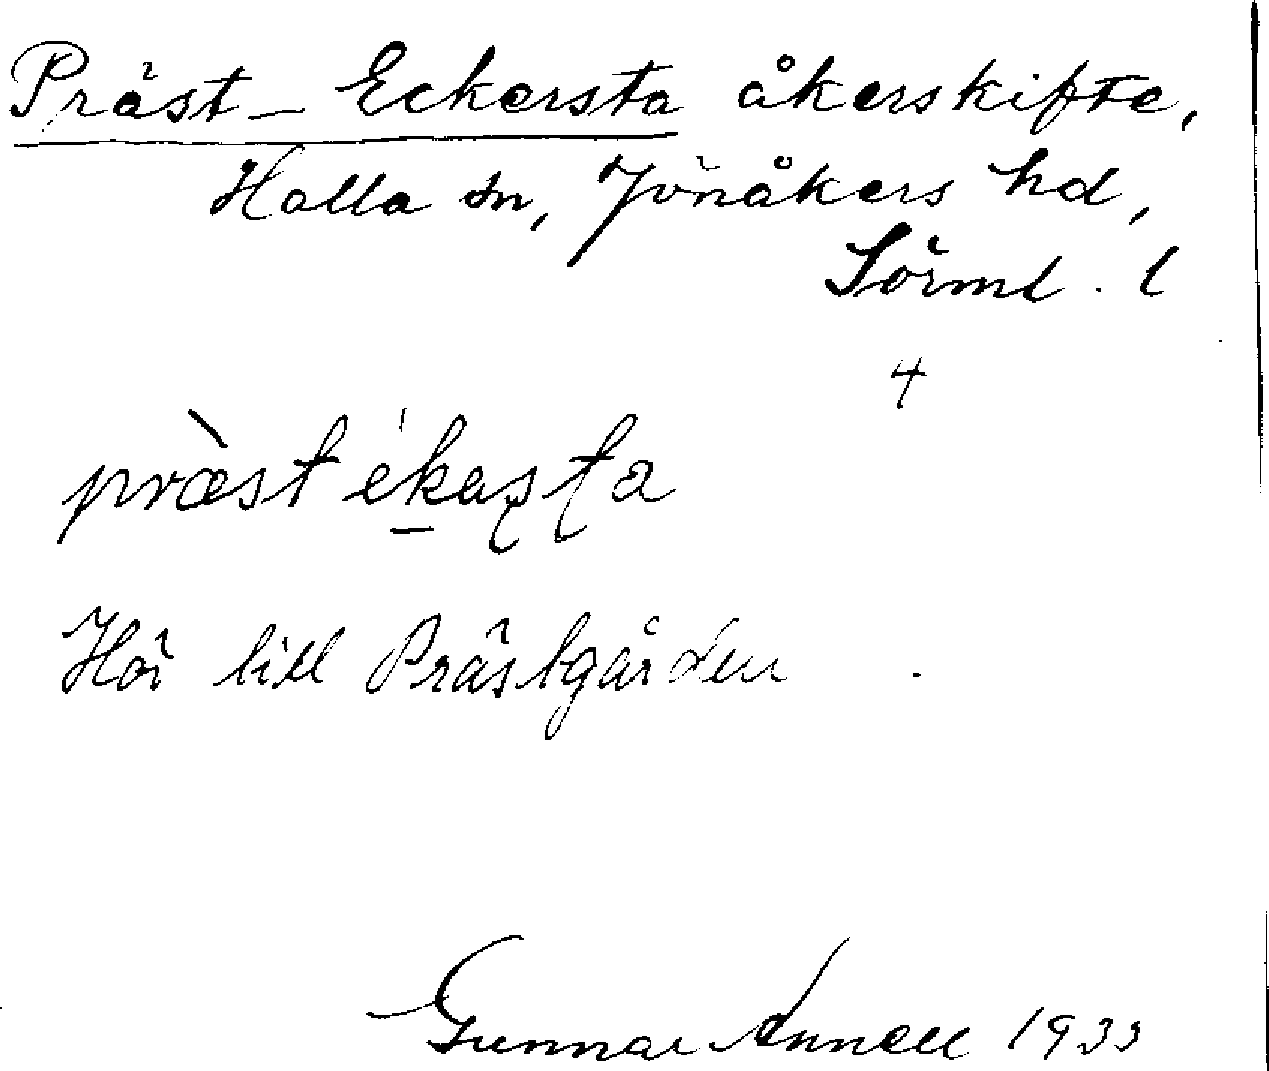 Präst-Eckersta åkerskifte,
Halla sn, Jönåkers hd,
Sörml. l
4
prӕ̀st ékaʂʈa
Hör till Prästgården.
Gunnar Annell 1933